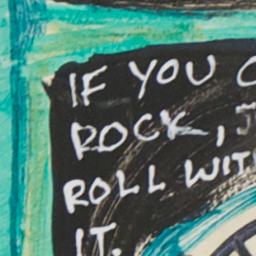 IF YOU
ROCK,
ROLL WITH
IT.